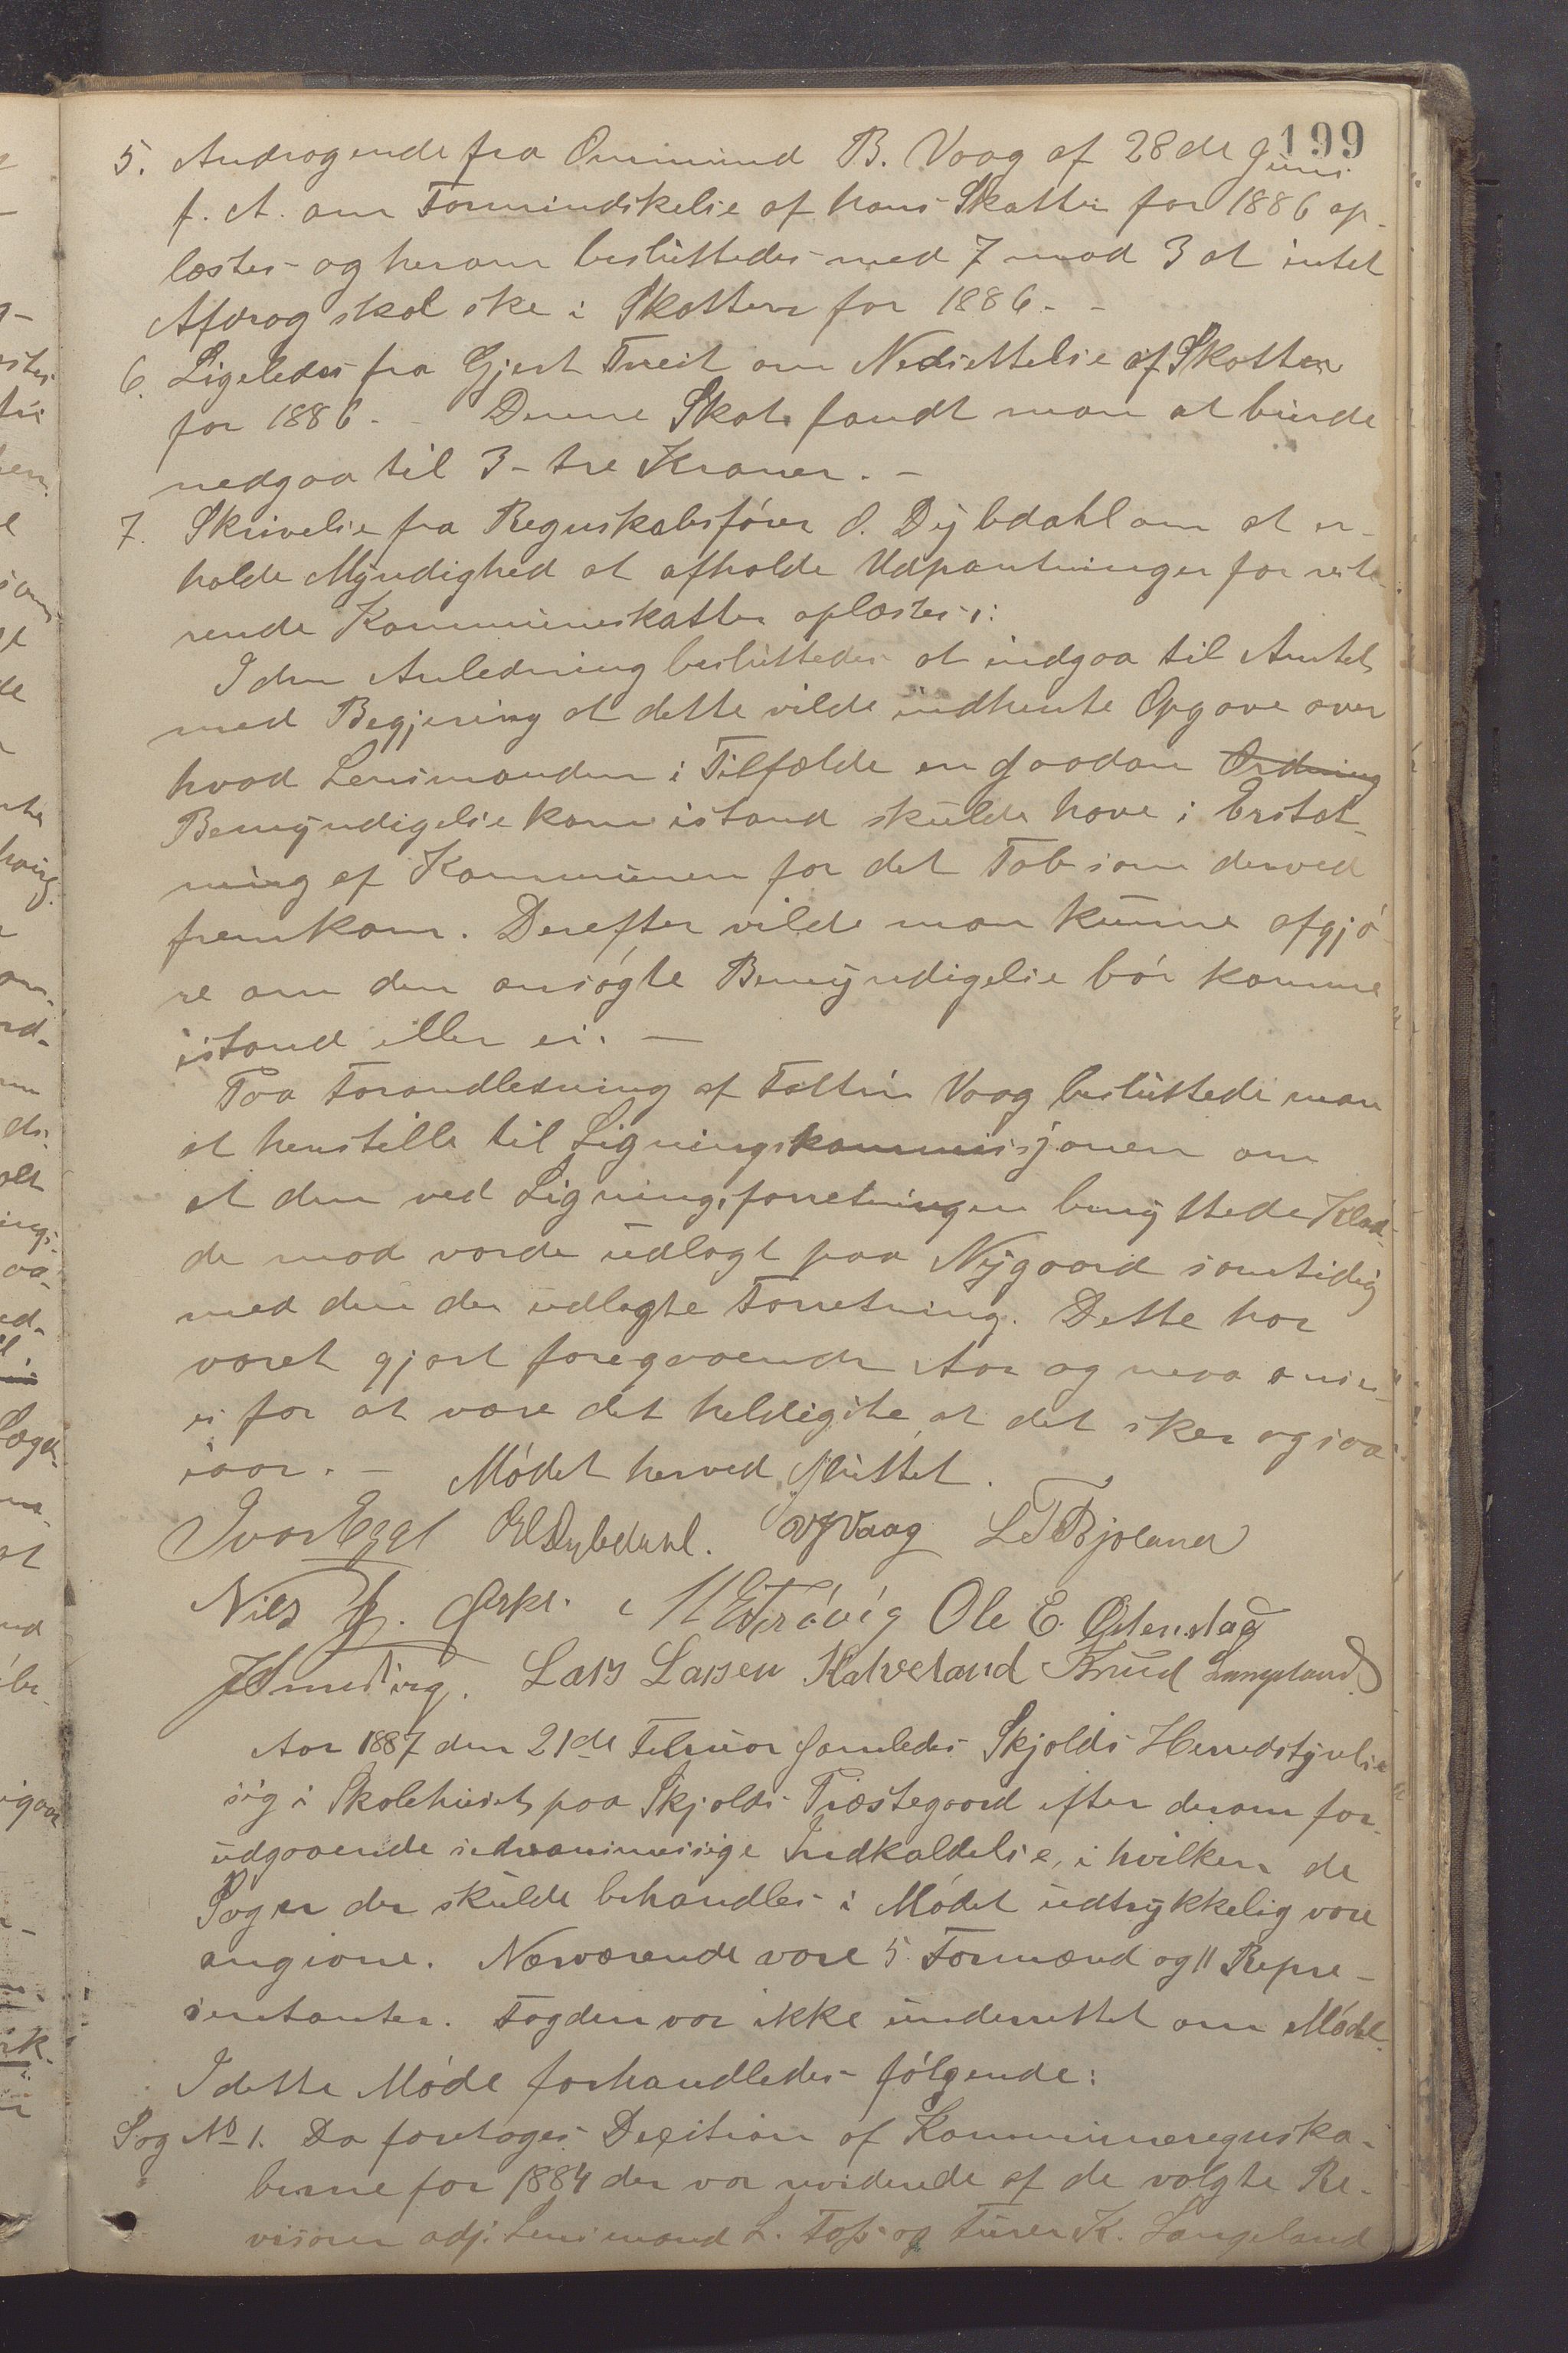 199
5. Andragende fra Ommund B. Vaag af 28de Juni
f. A. om Formindskelse af hans Skatter for 1886 op-
læstes og herom besluttedes med 7 mod 3 at intet
Afdrag skal ske i Skatten for 1886. -
6. Ligeledes fra Gjert Tveit om Nedsettelse af Skatten
for 1886. - Denne Skat fandt man at burde
nedgaa til 3 - tre Kroner. -
7. Skrivelse fra Regnskabsfører O. Dybdahl om at er-
holde Myndighed at afholde Udpantninger for reste-
rende Kommuneskatter oplæstes:
I den Anledning besluttedes at indgaa til Amtet
med Begjering at dette vilde indhente Opgave over
hvad Lensmanden i Tilfælde en saadan Ordning
Bemyndigelse kom istand skulde have i Erstat-
ning af Kommunen for det Tab som derved
fremkom. Derefter vilde man kunne afgjø-
re om den ansøgte Bemyndigelse bør komme
istand eller ei. -
Paa Foranledning af Vaag besluttede man
at henstille til Ligningskommissjonen om
at den ved Ligningsforretningen benyttede Klad-
de maa vorde udlagt paa Nygaard samtidig
med den der udlagte Forretning. Dette har
været gjort foregaaende Aar og maa anses
ei for at være det heldigste at det sker ogsaa
iaar. - Mødet herved sluttet.
Ivar Egge O Dybdahl. Vaag L T Bjoland
Nils J. Ole E.
Lars Larsen Kalveland Knud Langeland
Aar 1887 den 21de Februar samledes Skjolds Herredstyrelse
sig i Skolehuset paa Skjolds Præstegaard efter derom for-
udgaaende sedvanmessige Indkaldelse, i hvilken de
Sager der skulde behandles i Mødet udtrykkelig vare
angivne. Nærværende vare 5 Formænd og 11 Repre-
sentanter. Fogden var ikke underrettet om Mødet.
I dette Møde forhandledes følgende:
Sag No 1. Da foretages Decition af Kommuneregnska-
berne for 1884 der var reviderede af de valgte Re-
visorer adj. Lensmand L. og K. Langeland